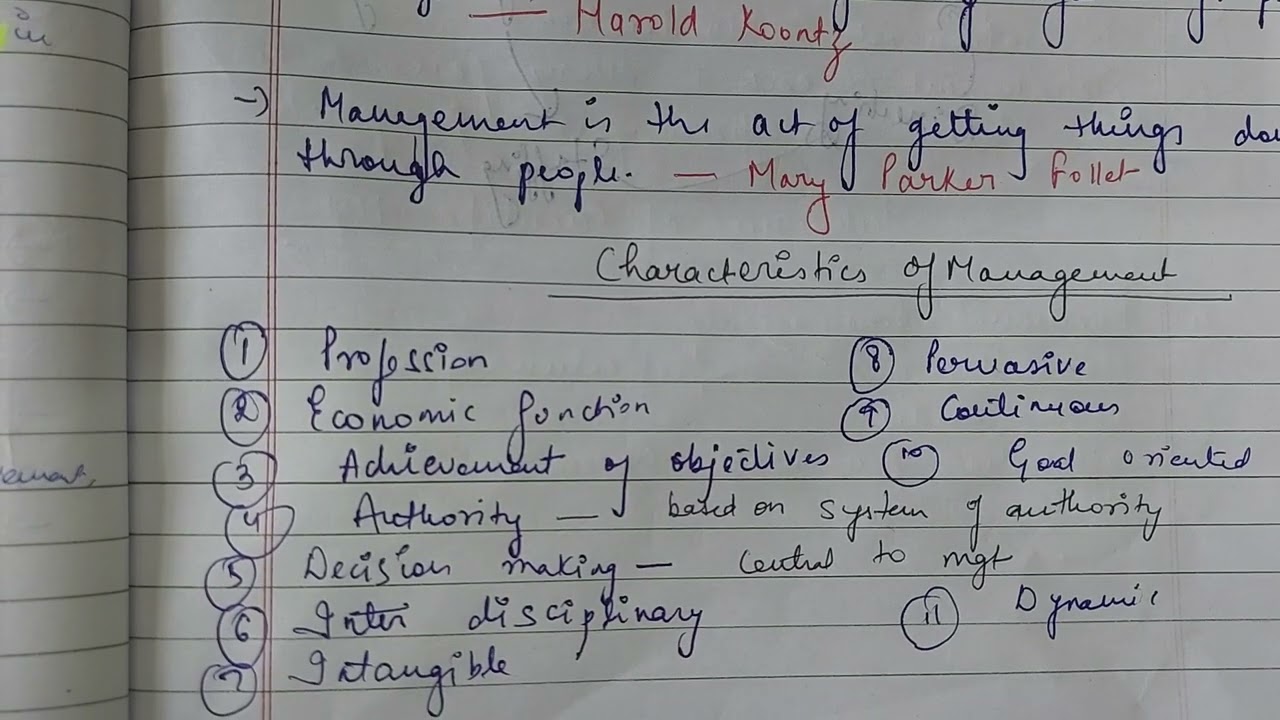 — Harold Koontz
→ Management is the act of getting things
through people. — Mary Parker Follet
Characteristics of Management
① Profession ⑧ Pervasive
② Economic function ⑨ Continuous
③ Achievement of objectives ⑩ Goal oriented
④ Authority — based on system of authority
⑤ Decision making — Central to mgt
⑥ Inter disciplinary ⑪ Dynamic
⑦ Intangible